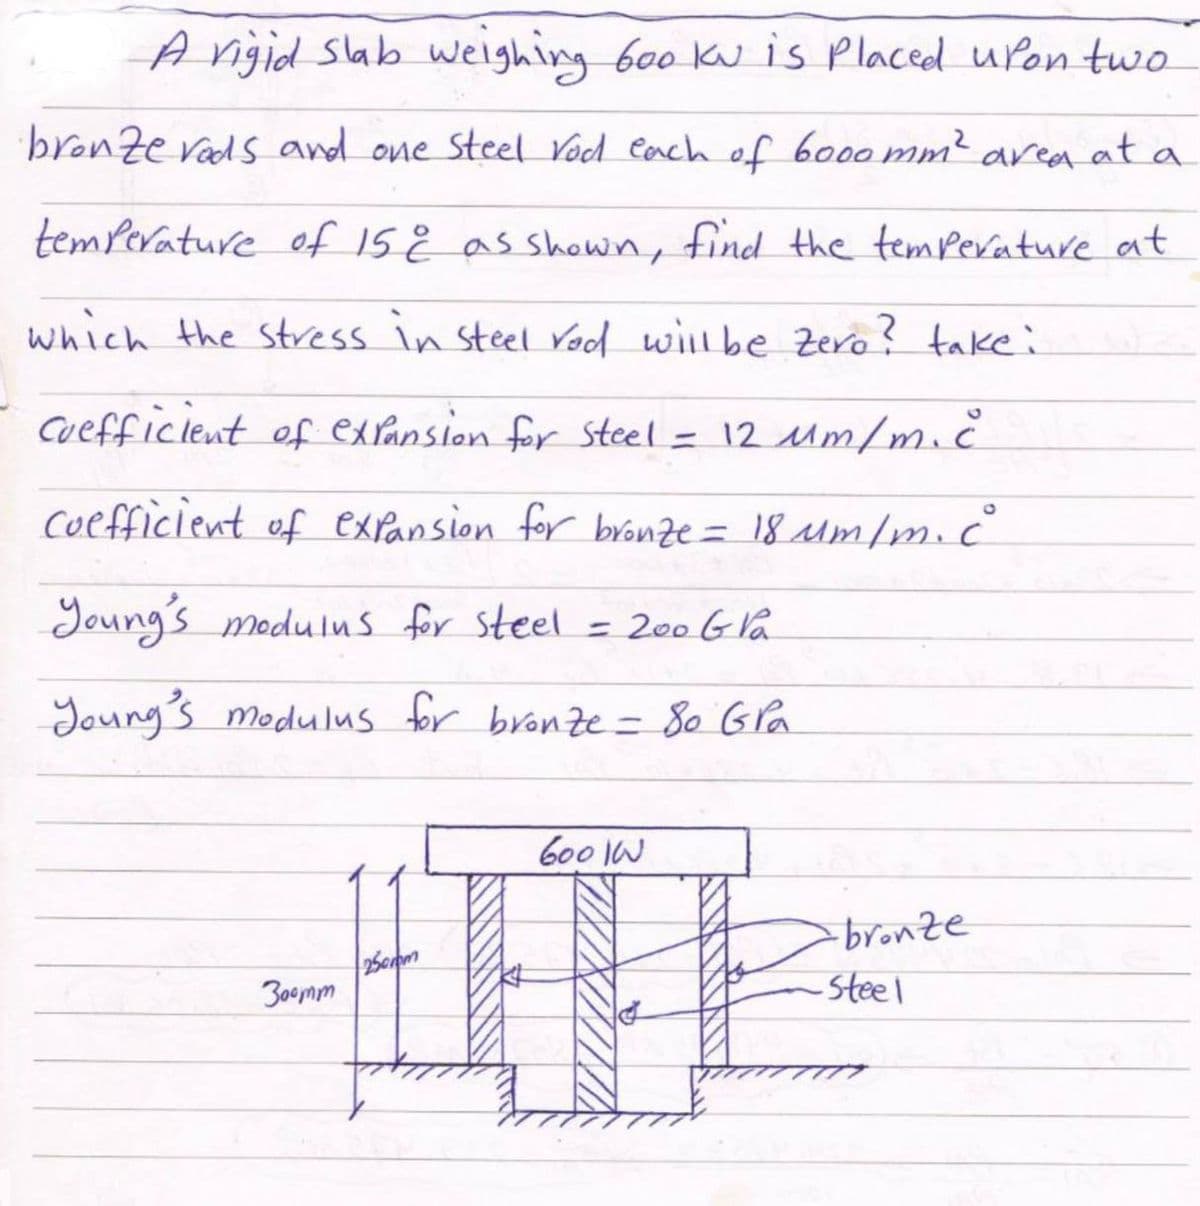 A rigid slab weighing 600 kw is Placed upon two
bronze rods and one Steel rod each of 6000 mm² area at a
temperature of 15 c̊ as shown, find the temperature at
which the stress in steel rod will be zero? take:
Coefficient of expansion for steel = 12 µm/m.c̊
Coefficient of expansion for bronze = 18 µm/m.c°
Young's modulus for steel = 200 GPa
Young's modulus for bronze = 80 GPa
600 kw
bronze
250mm
Steel
300mm